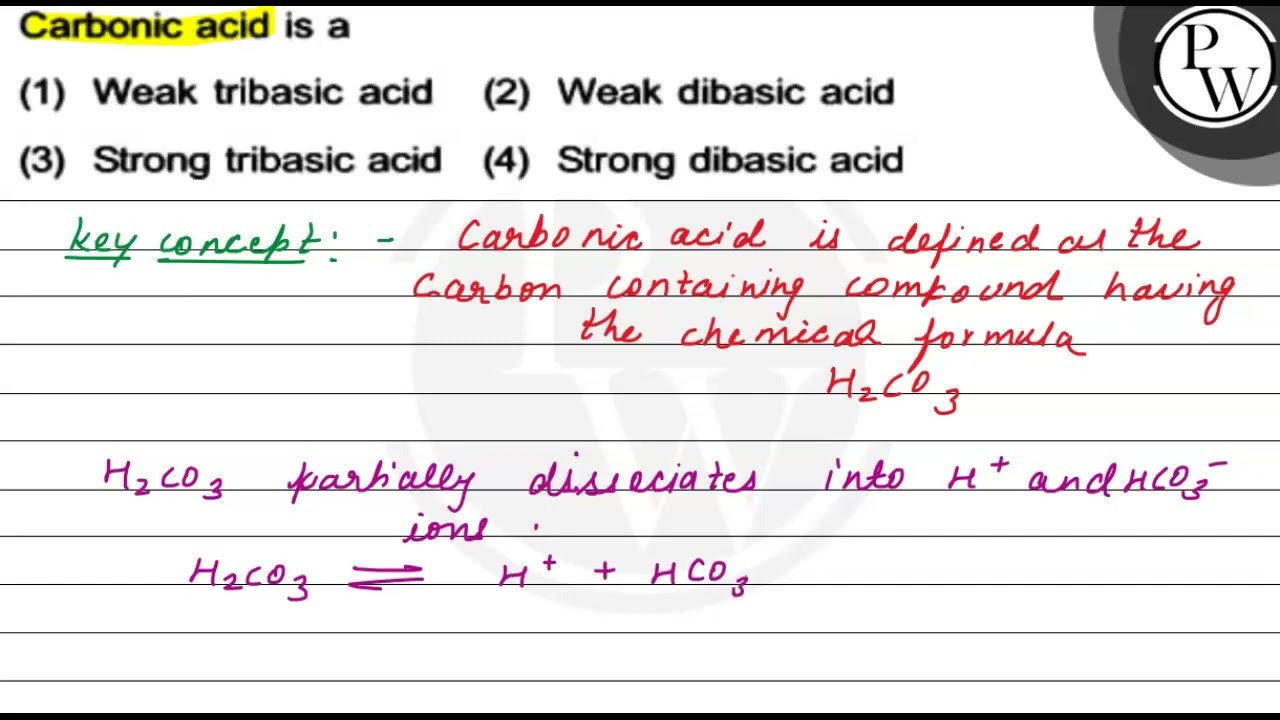 Carbonic acid is a
(1) Weak tribasic acid (2) Weak dibasic acid
(3) Strong tribasic acid (4) Strong dibasic acid
PW
key concept: - Carbonic acid is defined as the
Carbon containing compound having
the chemical formula
H₂CO₃
H₂CO₃ partially dissociates into H⁺ and HCO₃⁻
ions.
H₂CO₃ ⇌ H⁺ + HCO₃